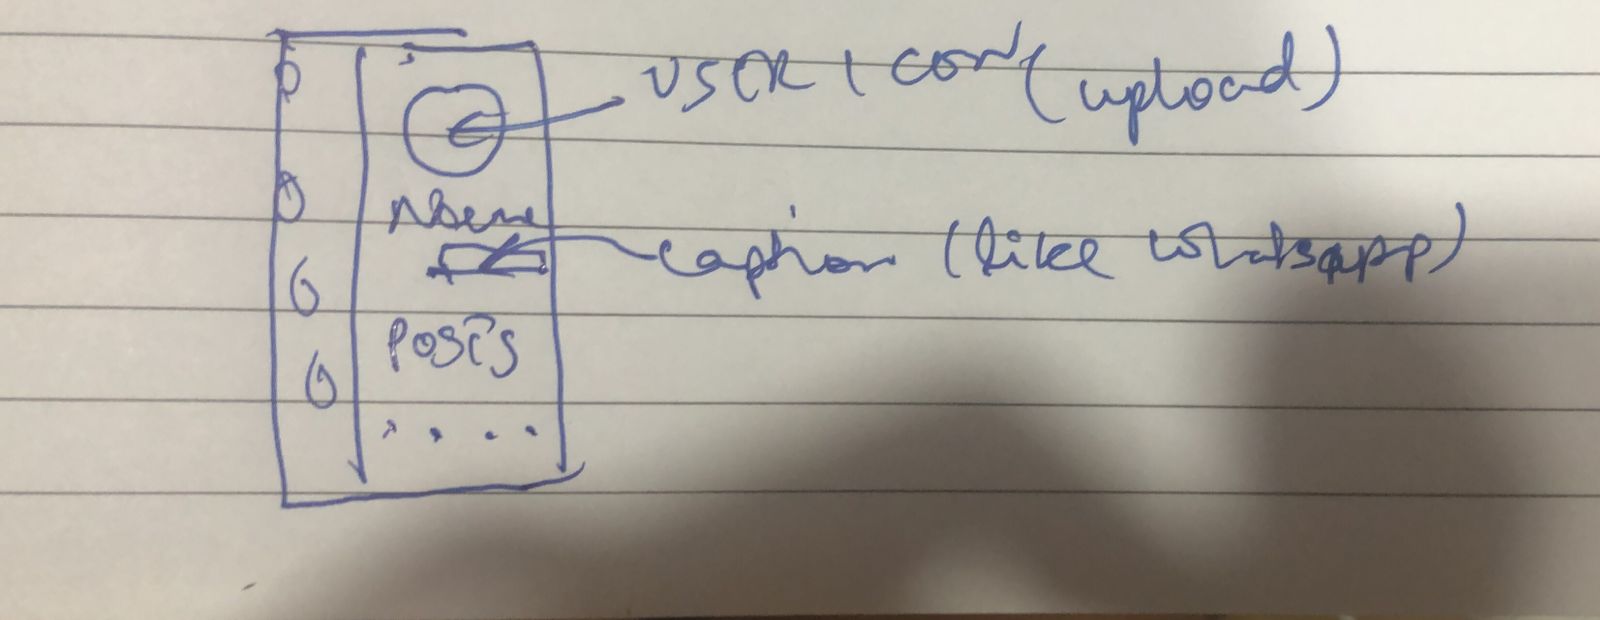 USER ICON (upload)
Name
caption (like whatsapp)
POSTS